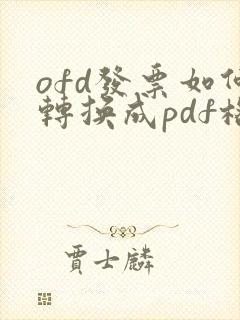 ofd發票如何
轉換成pdf格
賈士麟